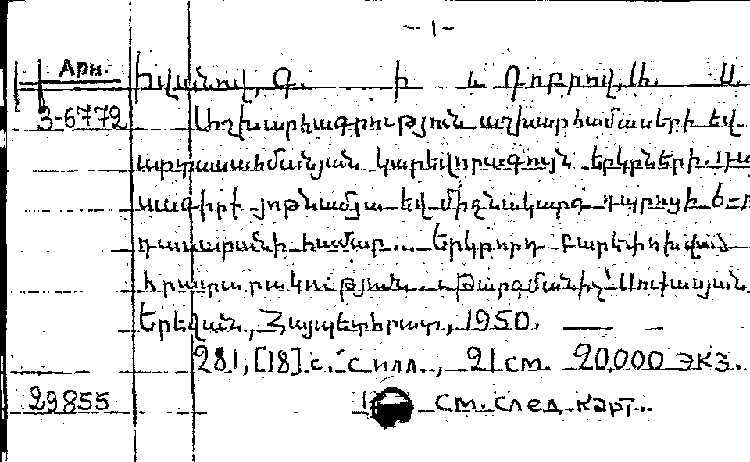 -1-
Арм. Իվանով, Գ. Ի և Դոբրով, Ա. Ս.
3-6772 Աշխարհագրություն աշխարհամասերի եվ
արտասահմանյան կարեվորագույն երկրների. Դա
սագիրք յոթնամյա եվ միջնակարգ դպրոցի 6-րդ
դասարանի համար... Երկրորդ բարեփոխված
հրատարակություն... Թարգմանիչ՝ Սուխասյան.
Երեվան, Հայպետհրատ, 1950.
281, [18] с. с илл., 21 см. 20.000 экз.
29855 См. след. карт..